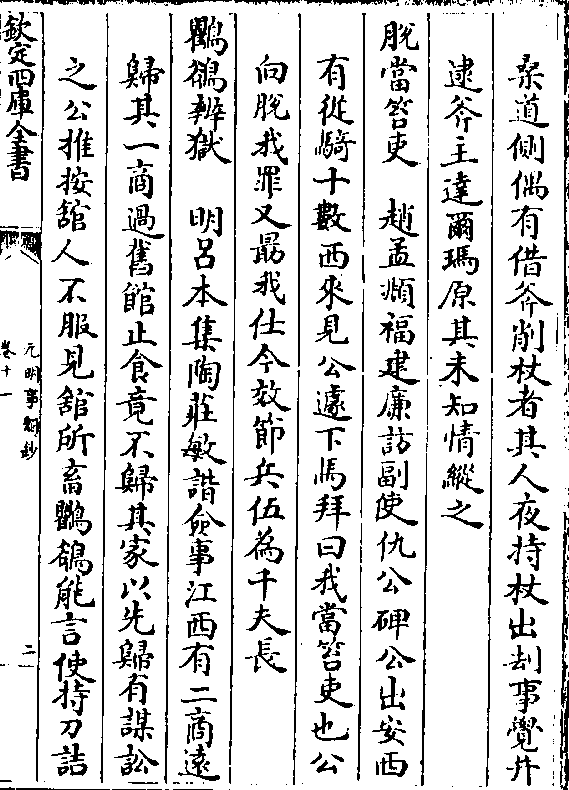 桑道側偶有借斧削杖者其人夜持杖出刦事覺并
逮斧主達爾瑪原其未知情縱之
脫當笞吏　趙孟頫福建廉訪副使仇公碑公出安西
有從騎十數西來見公遽下馬拜曰我當笞吏也公
向脫我罪又勗我仕今效節兵伍為千夫長
鸜鵒辨獄　明呂本集陶莊敏諧僉事江西有二商遠
歸其一商過舊館止食竟不歸其家以先歸有謀訟
之公推按舘人不服見舘所畜鸜鵒能言使持刀詰
欽定四庫全書
元明事類鈔
卷十一
二